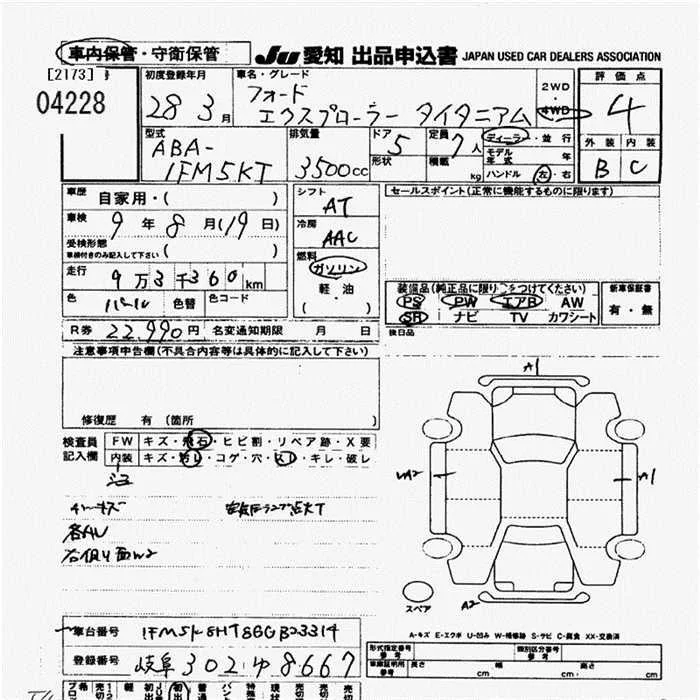 車内保管・守衛保管 JU 愛知 出品申込書 JAPAN USED CAR DEALERS ASSOCIATION
[2173]
04228
初度登録年月 28 3月
車名・グレード フォード エクスプローラー タイタニアム
2WD
4WD
評価点 4
型式 ABA-1FM5KT
排気量 3500cc
ドア 5
形状
定員 7人
積載 kg
ディーラー・並行
モデル年式 年
ハンドル 左・右
外装 内装
B C
車歴 自家用・( )
車検 9年8月(19日)
受検形態
車検付きのみ記入して下さい ( )
走行 9万3千360km
色 パール 色替 色コード
シフト AT
冷房 AAC
燃料 ガソリン
軽油
( ・ )
セールスポイント(正常に機能するものに限ります)
装備品(純正品に限り○をつけてください)
PS PW エアB AW
SR ナビ TV カワシート
新車保証書
有・無
R券 22,990円 名変通知期限 月 日
後日品
注意事項申告欄(不具合内容等は具体的に記入して下さい)
修復歴 有 (箇所 )
検査員記入欄
FW キズ・飛石・ヒビ割・リペア跡・X要
内装 キズ・汚レ・コゲ・穴・スレ・キレ・破レ
A1
A2
A1
A2
スペア
A-キズ E-エクボ U-凹み W-補修跡 S-サビ C-腐食 XX-交換済
車台番号 1FM5K8HT8GGB23314
登録番号 岐阜 302 ゆ 8667
形式指定番号
参考
類別区分番号
参考
車庫証明用
参考
長さ cm 幅 cm 高さ cm